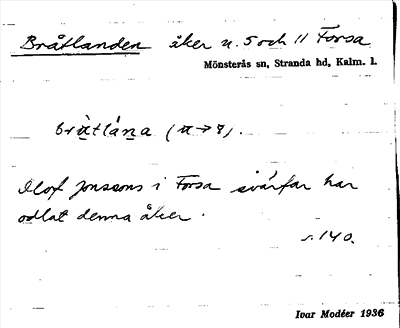 Bråtlanden åker n. 5 och 11 Forsa
Mönsterås sn, Stranda hd, Kalm. l.
Olof Jonssons i Forsa svärfar har
odlat denna åker.
s. 140.
Ivar Modéer 1936